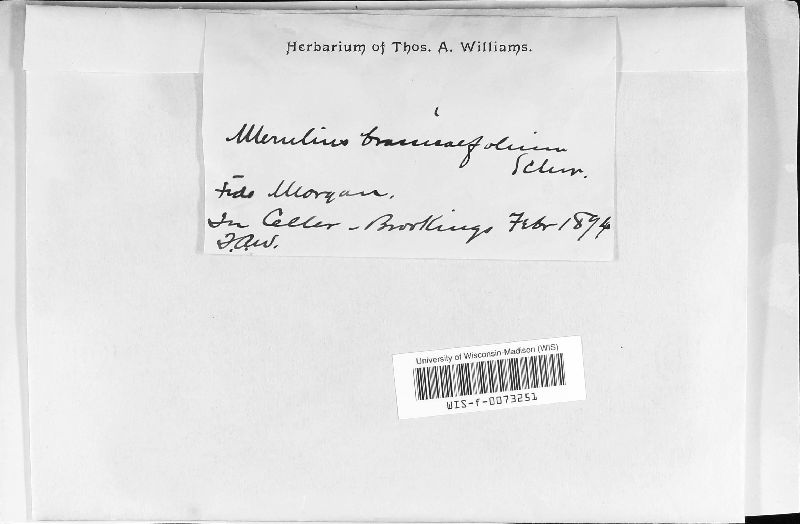 Herbarium of Thos. A. Williams.
Merulius brassicaefolium
Schw.
Fide Morgan.
In Celler - Brookings Febr 1894
T.A.W.
University of Wisconsin-Madison (WIS)
WIS-f-0073251